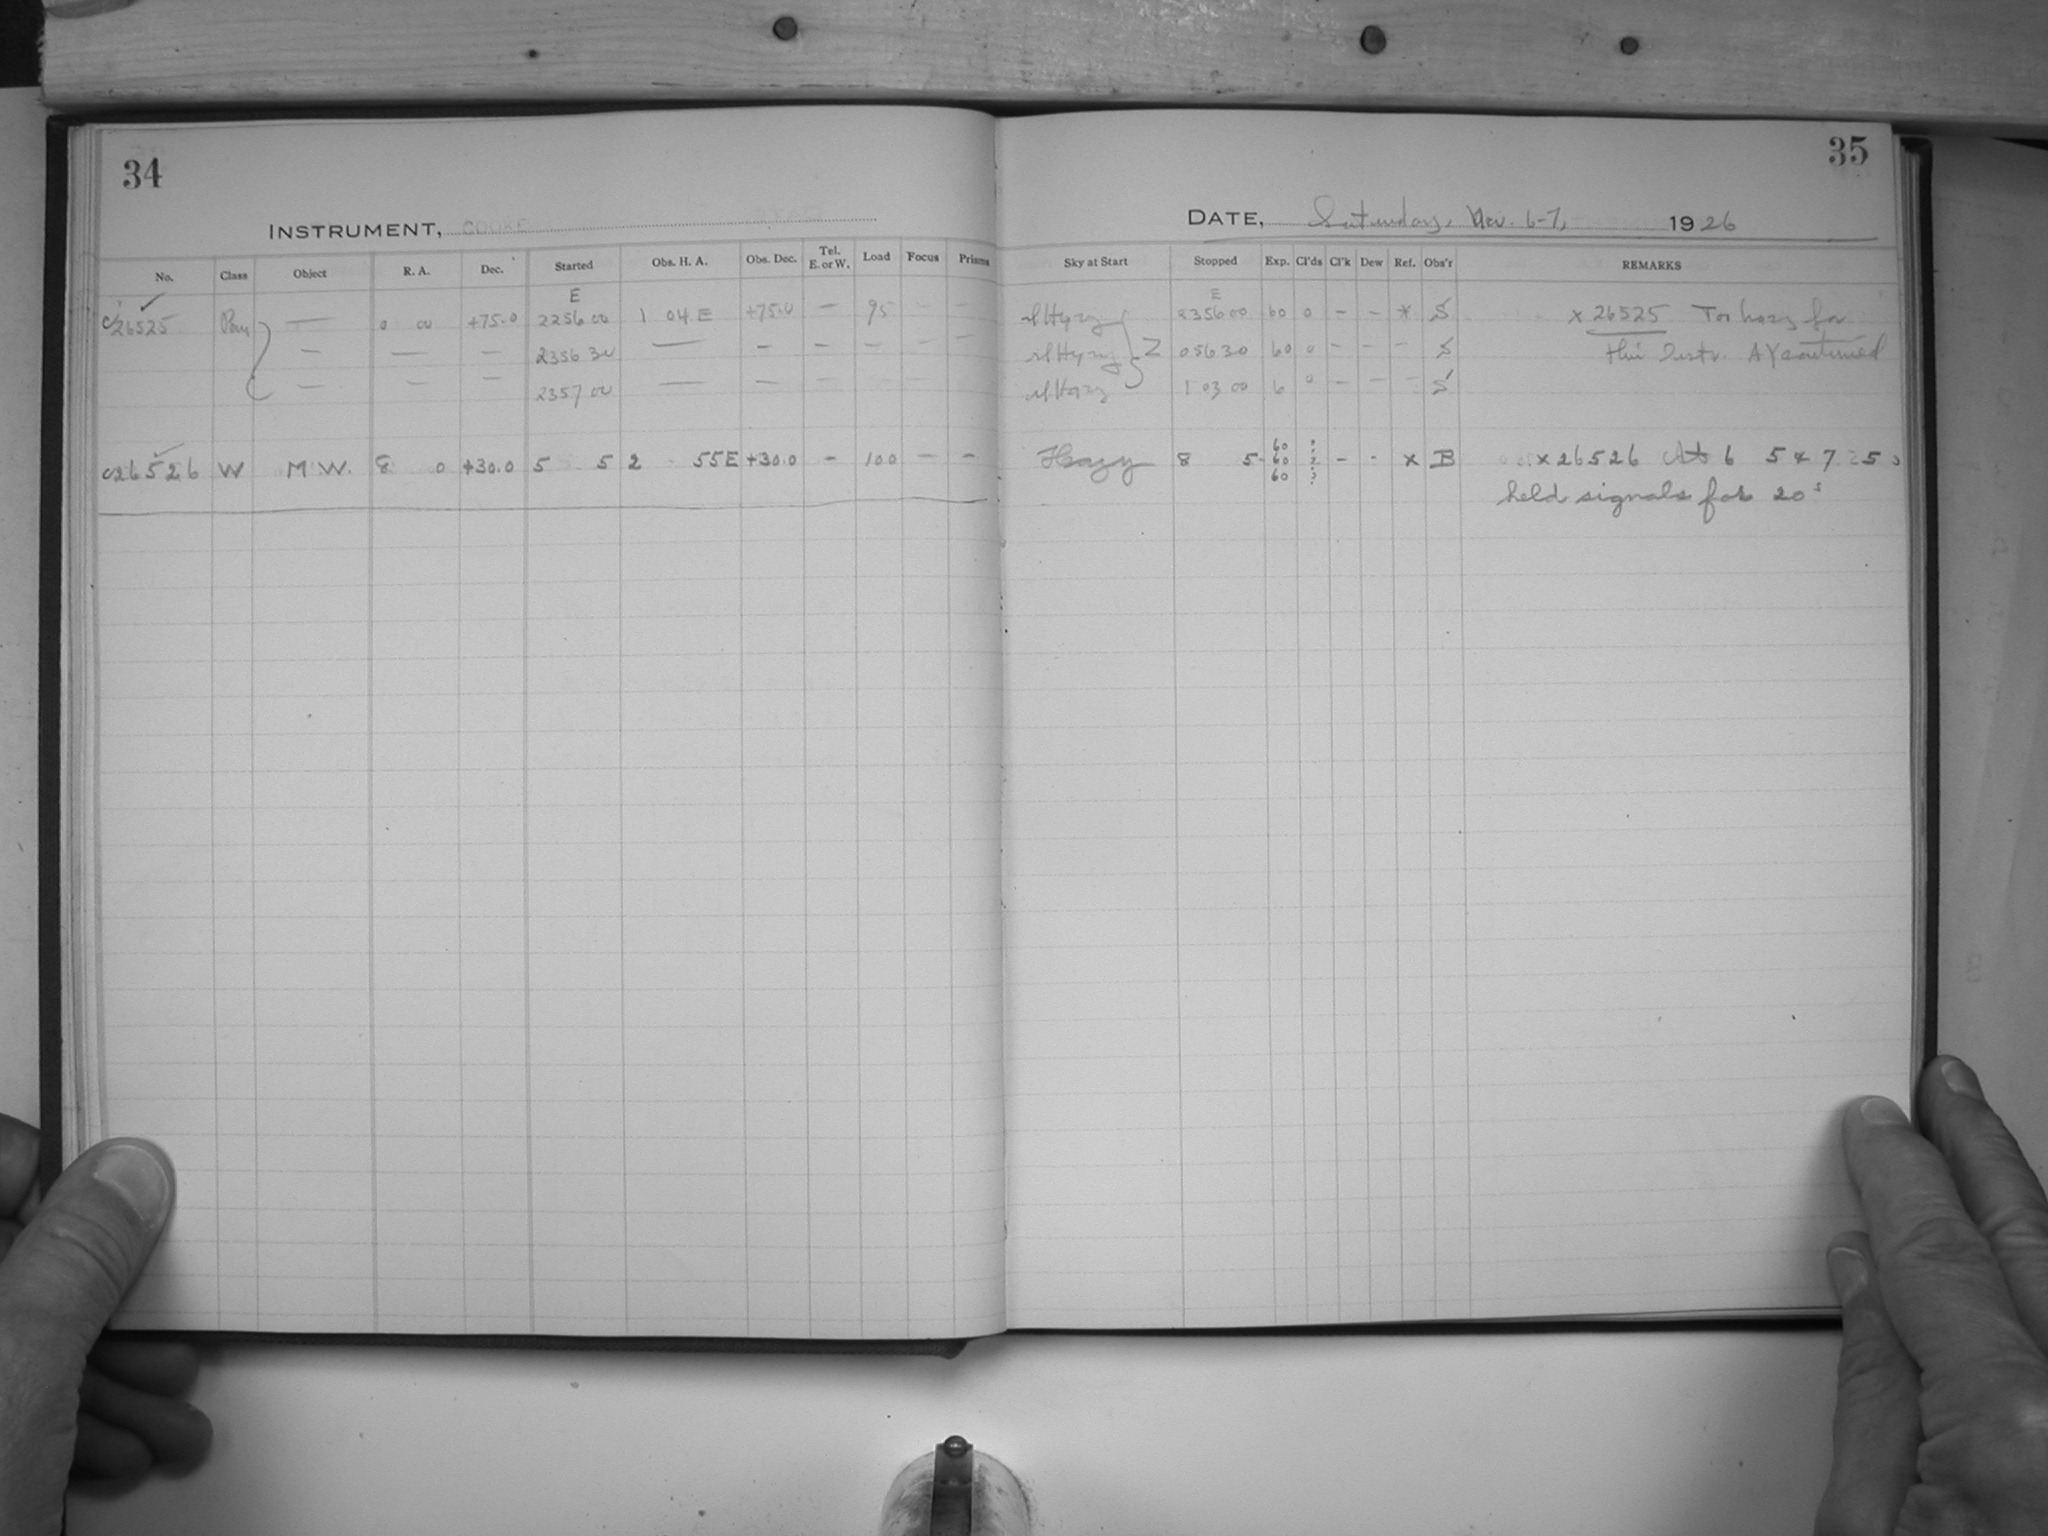 34
INSTRUMENT, COOKE
No. Class Object R. A. Dec. Started Obs. H. A. Obs. Dec. Tel. E. or W. Load Focus Prisms
E
c26525 0 00 +75.0 2256 00 1 04 E +75.0 — 95 — —
— — — 2356 30 — — — — — —
— — — 2357 00 — — — — — —
c26526 W M W. 8 0 +30.0 5 5 2 55E +30.0 - 100 - -
35
DATE, Saturday, Nov. 6-7, 1926
Sky at Start Stopped Exp. Cl'ds Cl'k Dew Ref. Obs'r REMARKS
E
sl Hazy 2356 00 60 0 - - x S x 26525 Too hazy for
sl Hazy 2 0 56 30 60 0 - - - S this Instr. AY continued
sl Hazy 1 03 00 6 0 - - - S
Hazy 8 5 60 60 60 - - x B x 26526 At 6 5 & 7 5
held signals for 20s